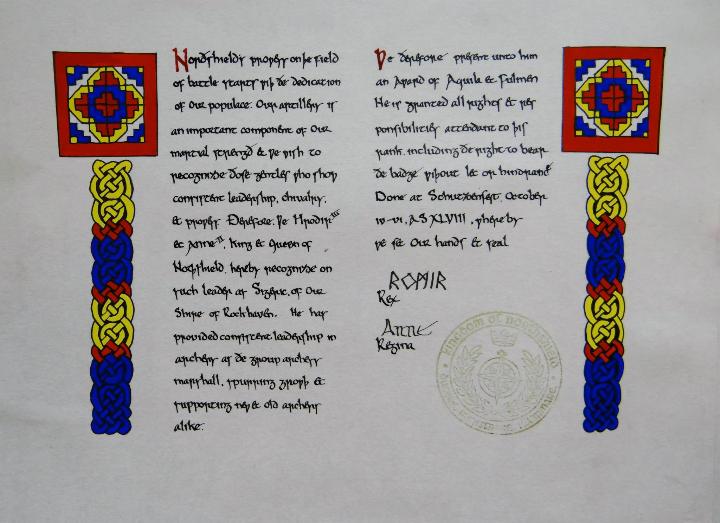 Norðshield's proƿess on þe field
of battle starts ƿiþ ðe dedication
of Our populace. Our artillery is
an important component of Our
martial strengð et Ƿe ƿish to
recognize ðose gentles ƿho shoƿ
consistent leadership, chivalry,
et proƿess. Ðerefore, Ƿe Hrodir III
et Anne II, King et Queen of
Norþshield, hereby recognize on
such leader as Sigeric, of Our
Shire of Rockhaven. He has
provided consistent leadership in
archery as ðe group archery
marshall, spurring groƿþ et
supporting neƿ et old archers
alike.
Ƿe ðerefore present unto him
an Aƿard of Aquila et Fulmen
He is granted all rights et res
ponsibilities attendant to þis
rank, including ðe right to bear
ðe badge ƿiþout let or hindrance
Done at Schutzenfest, October
AS XLVIII, ƿhere by
ƿe set Our hands et seal
Rex
Anne
Regina
Kingdom of Northshield